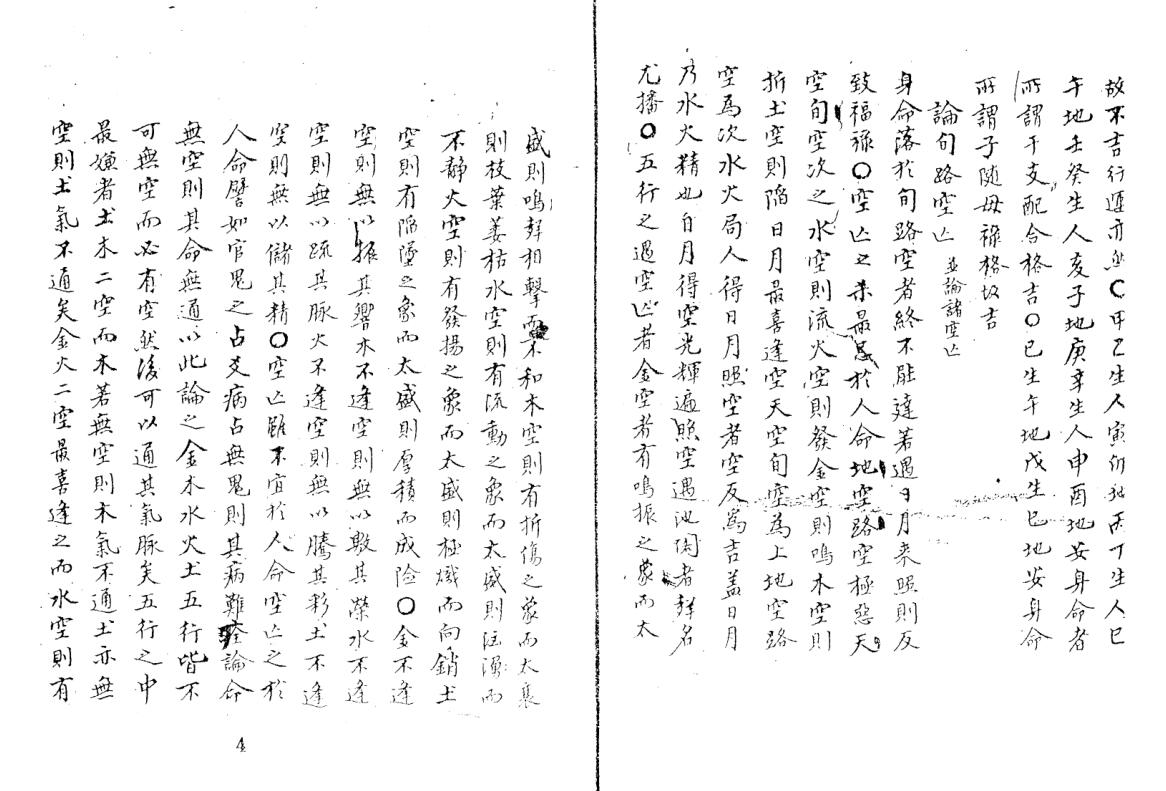 故不吉行運亦然○甲乙生人寅卯地丙丁生人巳
午地壬癸生人亥子地庚辛生人申酉地安身命者
所謂干支配合格吉○己生午地戊生巳地安身命
所謂子隨母祿格故吉
論旬路空亡 並論諸空亡
身命落於旬路空者終不能達若遇日月来照則反
致福祿○空亡之来最忌於人命地空路空極惡天
空旬空次之水空則流火空則發金空則鳴木空則
折土空則陷日月最喜逢空天空旬空為上地空路
空為次水火局人得日月照空者空反爲吉盖日月
乃水火精也自月得空光輝遍照空遇池闲者聲名
尤播○五行之遇空亡者金空者有鳴振之象而太
盛則鳴聲相擊而不和木空則有折傷之象而太衰
則枝葉萎枯水空則有流動之象而太盛則汪湧而
不靜火空則有發揚之象而太盛則極熾而向銷土
空則有陷墜之象而太盛則厚積而成险○金不逢
空則無以振其響木不逢空則無以敷其榮水不逢
空則無以疏其脉火不逢空則無以騰其彩土不逢
空則無以儲其精○空亡雖不宜於人命空亡之於
人命譬如官鬼之占爻病占無鬼則其病難痊論命
無空則其命無通以此論之金木水火土五行皆不
可無空而必有空然後可以通其氣脉矣五行之中
最嫌者土木二空而木若無空則木氣不通土亦無
空則土氣不通矣金火二空最喜逢之而水空則有
4